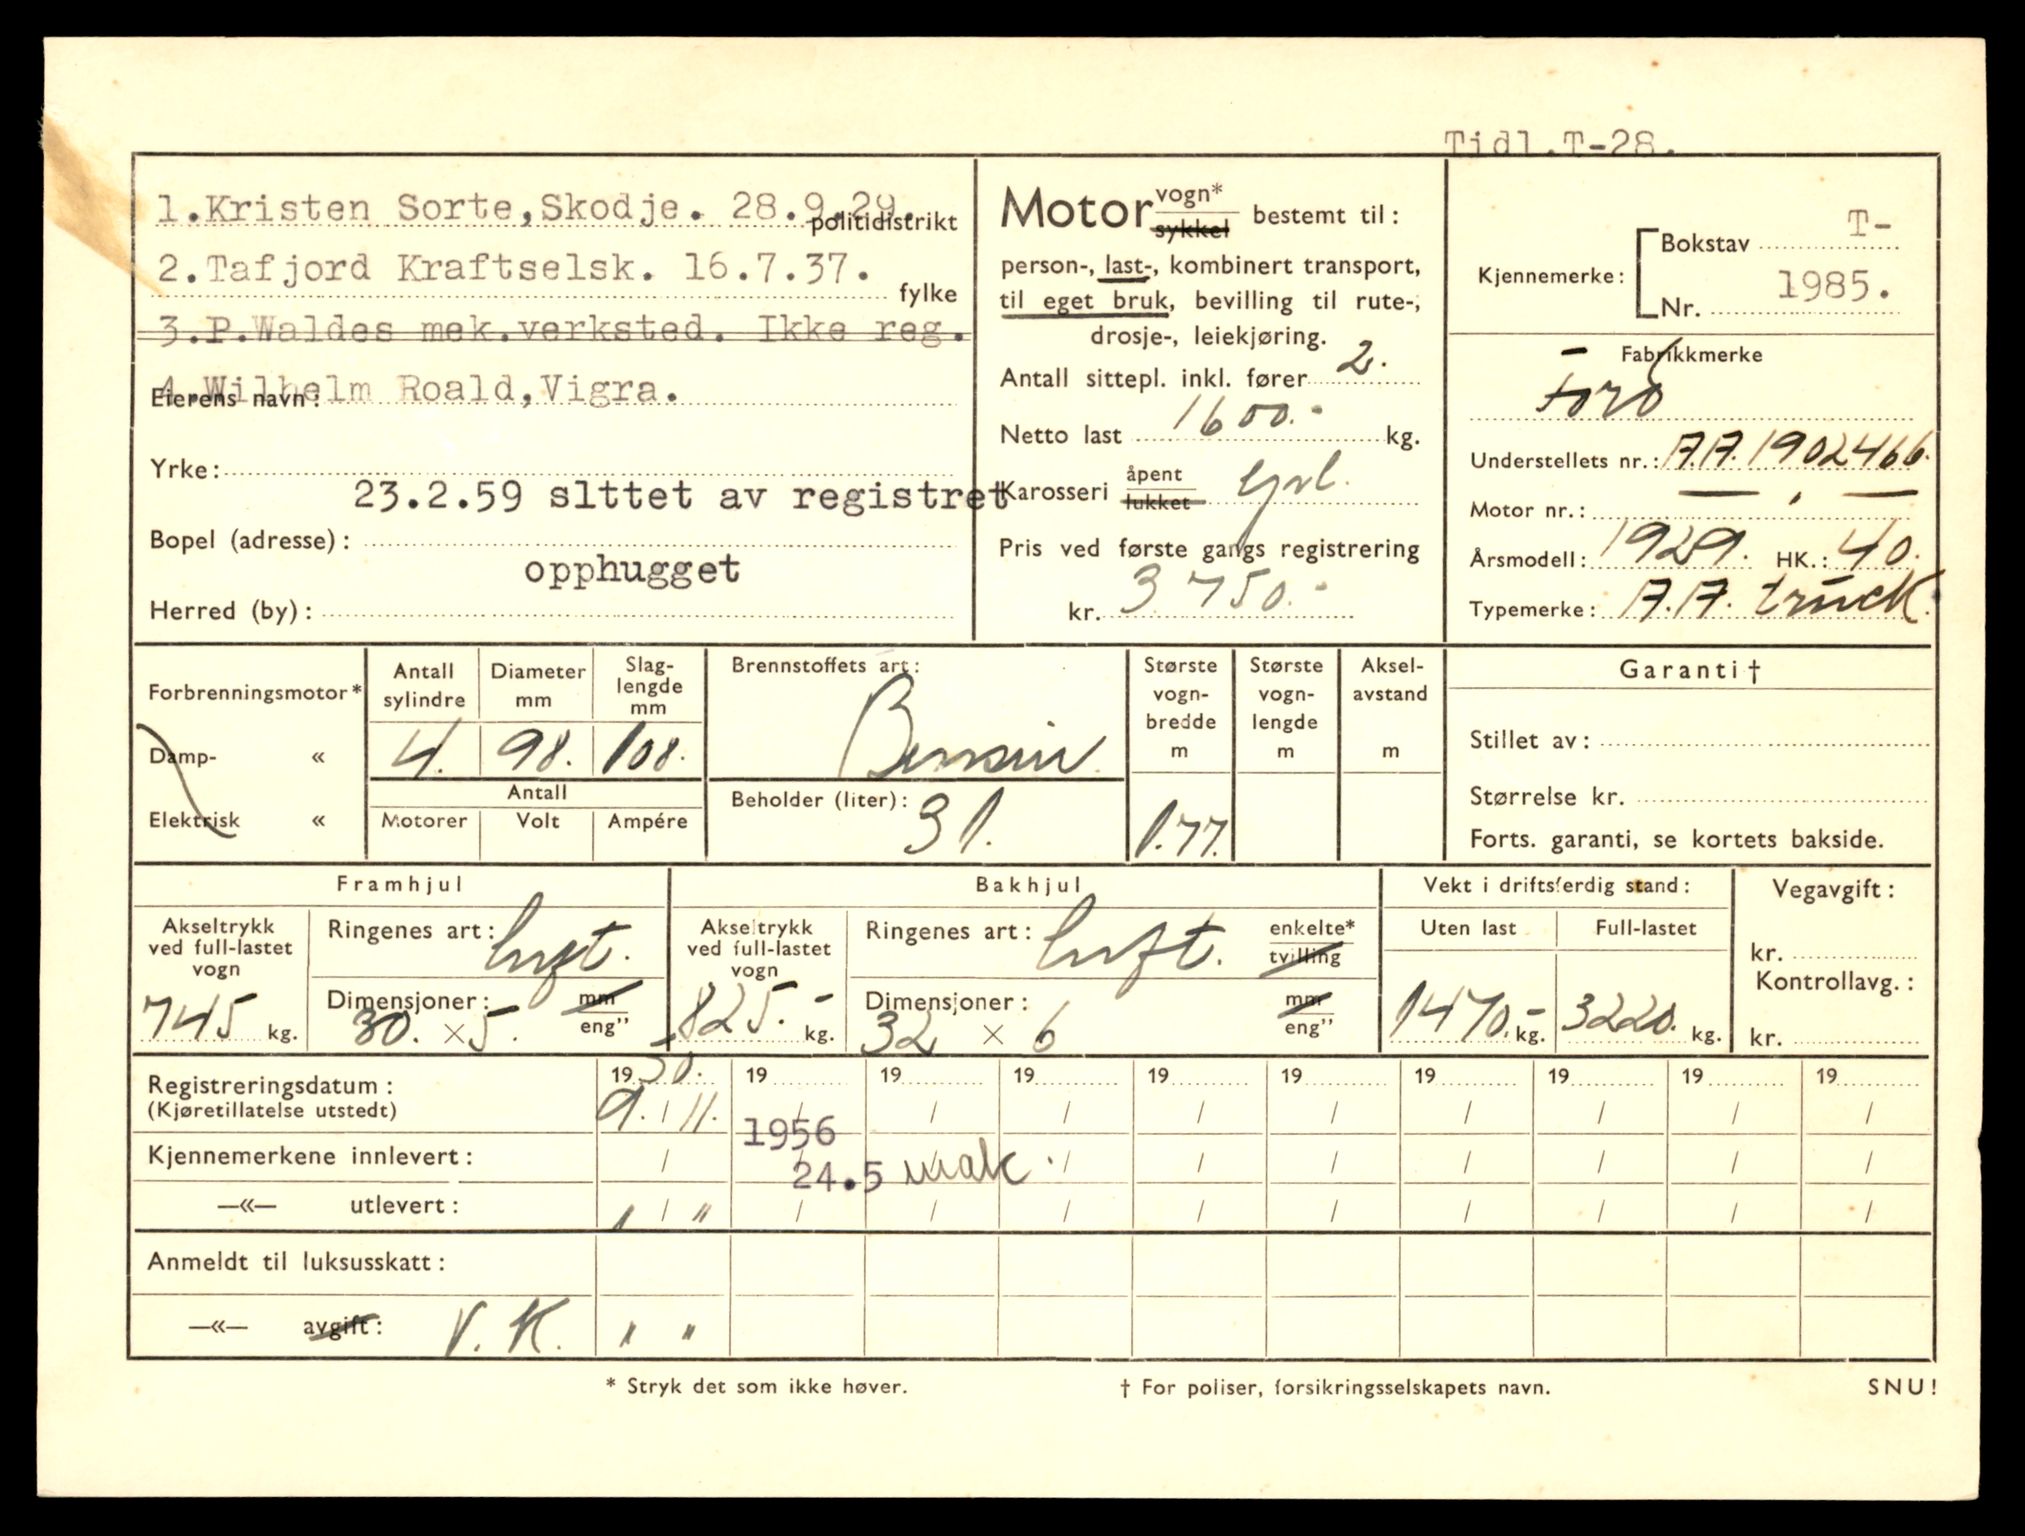 Tidl.T-28.
1.Kristen Sorte,Skodje. 28.9.29.
politidistrikt
2.Tafjord Kraftselsk. 16.7.37.
fylke
3.P.Waldes mek.verksted. Ikke reg.
4.Wilhelm Roald,Vigra.
Eierens navn:
Yrke:
23.2.59 slttet av registret
Bopel (adresse):
opphugget
Herred (by):
Motor vogn* sykkel bestemt til:
person-, last-, kombinert transport,
til eget bruk, bevilling til rute-,
drosje-, leiekjøring.
Antall sittepl. inkl. fører 2.
Netto last 1600.- kg.
Karosseri åpent lukket
Pris ved første gangs registrering
kr. 3750.-
Kjennemerke: Bokstav T-
Nr. 1985.
Fabrikkmerke
Ford
Understellets nr.: A.A. 1902466.
Motor nr.: — " —
Årsmodell: 1929. HK.: 40.
Typemerke: A.A. truck.
Forbrenningsmotor*
Damp- «
Elektrisk «
Antall sylindre
4.
Diameter mm
98.
Slag-
lengde
mm
108.
Antall
Motorer Volt Ampére
Brennstoffets art:
Bensin
Beholder (liter):
31.
Største
vogn-
bredde
m
1.77.
Største
vogn-
lengde
m
Aksel-
avstand
m
Garanti †
Stillet av:
Størrelse kr.
Forts. garanti, se kortets bakside.
Framhjul
Akseltrykk
ved full-lastet
vogn
745 kg.
Ringenes art: luft.
Dimensjoner: mm
30. × 5. eng"
Bakhjul
Akseltrykk
ved full-lastet
vogn
825.- kg.
Ringenes art: luft. enkelte*
tvilling
Dimensjoner: mm
32 × 6 eng"
Vekt i driftsferdig stand:
Uten last Full-lastet
1470.- kg. 3220. kg.
Vegavgift:
kr.
Kontrollavg.:
kr.
Registreringsdatum: 1950. 19 19 19 19 19 19 19 19 19
(Kjøretillatelse utstedt) 9. / 11. / / / / / / / / /
1956
Kjennemerkene innlevert: / / / / / / / / / /
24.5 mak.
—«— utlevert: " / " / / / / / / / / /
Anmeldt til luksusskatt:
—«— avgift: V. K. " "
* Stryk det som ikke høver.
† For poliser, forsikringsselskapets navn.
SNU!